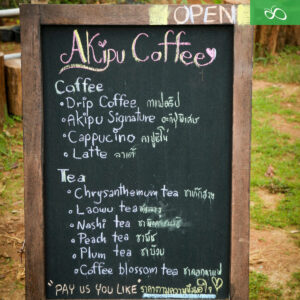 OPEN
Akipu Coffee
Coffee
Drip Coffee กาแฟดริป
Akipu Signature
Cappucino คาปูชิโน่
Latte ลาเต้
Tea
Chrysanthemum tea ชาเก๊กฮวย
Laowu tea
Nashi tea
Peach tea ชาพีช
Plum tea ชาบ๊วย
Coffee blossom tea ชาดอกกาแฟ
"PAY US YOU LIKE ราคาตามความพึงพอใจ